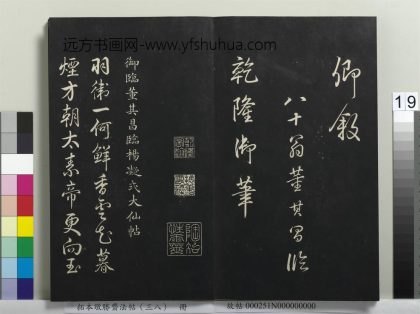 远方书画网-www.yfshuhua.com
卿叙
八十翁董其昌临
乾隆御笔
御臨董其昌臨楊凝式大仙帖
羽衛一何鮮香雲起暮
煙方朝太素帝更向玉
19
拓本墩勝齋法帖(三八) 冊
故帖 000251N000000000